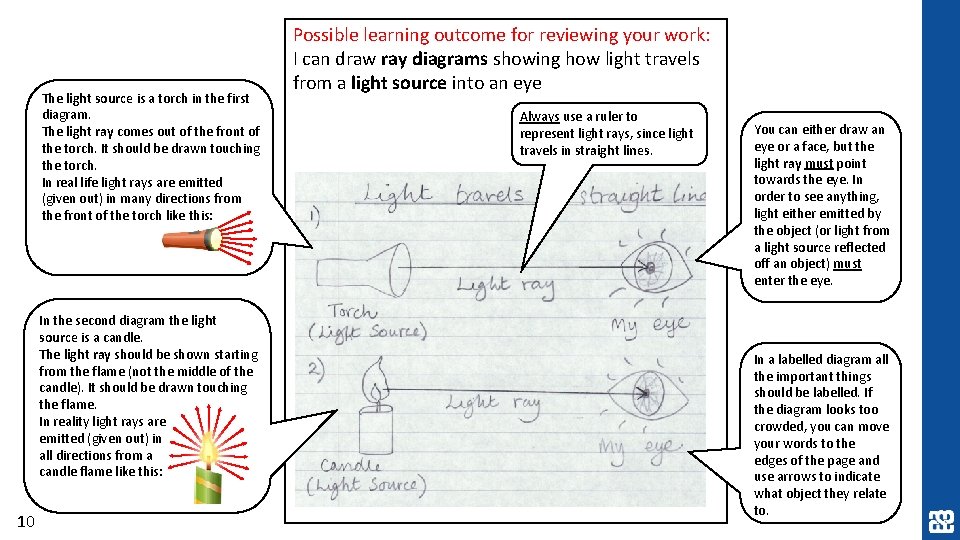 Possible learning outcome for reviewing your work:
I can draw ray diagrams showing how light travels
from a light source into an eye
The light source is a torch in the first
diagram.
The light ray comes out of the front of
the torch. It should be drawn touching
the torch.
In real life light rays are emitted
(given out) in many directions from
the front of the torch like this:
Always use a ruler to
represent light rays, since light
travels in straight lines.
You can either draw an
eye or a face, but the
light ray must point
towards the eye. In
order to see anything,
light either emitted by
the object (or light from
a light source reflected
off an object) must
enter the eye.
Light travels straight line
1)
Light ray
Torch
(Light Source)
My eye
In the second diagram the light
source is a candle.
The light ray should be shown starting
from the flame (not the middle of the
candle). It should be drawn touching
the flame.
In reality light rays are
emitted (given out) in
all directions from a
candle flame like this:
2)
Light ray
Candle
(Light Source)
My eye
In a labelled diagram all
the important things
should be labelled. If
the diagram looks too
crowded, you can move
your words to the
edges of the page and
use arrows to indicate
what object they relate
to.
10